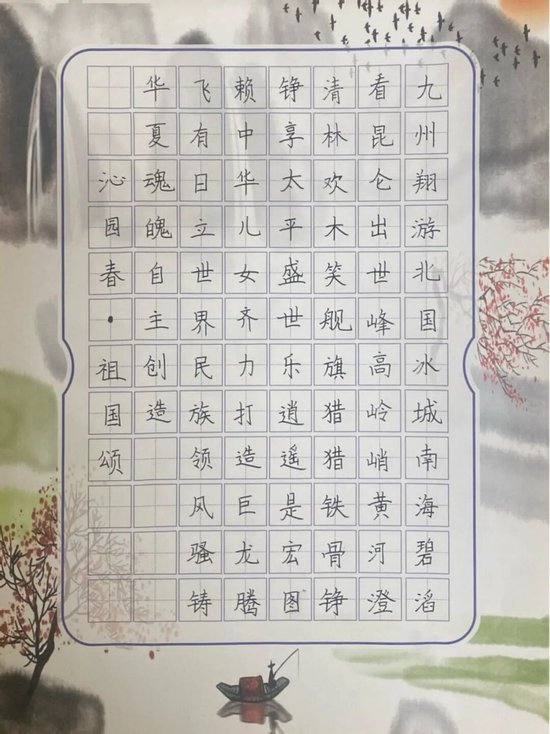 九州翔游北国冰城南海碧滔
看昆仑出世峰高岭峭黄河澄
清林欢木笑舰旗猎猎铁骨铮
铮享太平盛世乐逍遥是宏图
赖中华儿女齐力打造巨龙腾
飞有日立世界民族领风骚铸
华夏魂魄自主创造
沁园春·祖国颂